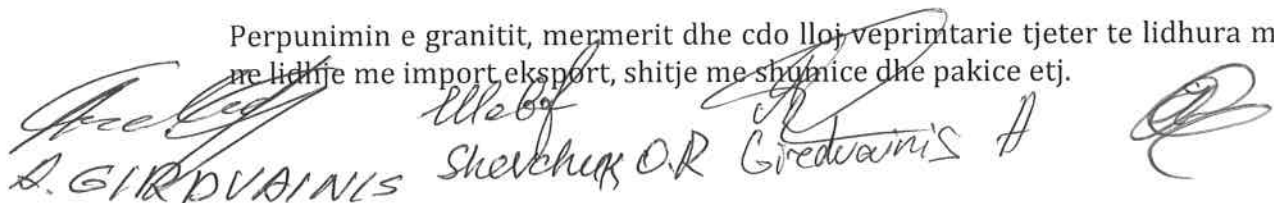 Perpunimin e granitit, mermerit dhe cdo lloj veprimtarie tjeter te lidhura m
ne lidhje me import,eksport, shitje me shumice dhe pakice etj.
A. GIRDVAINIS Shevchuk O.R Giredvainis A